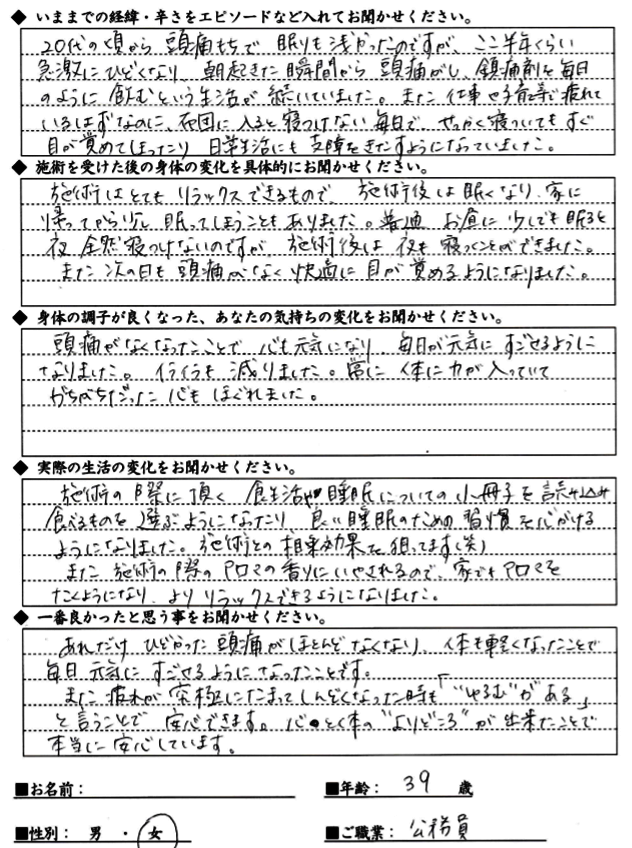 ◆ いままでの経緯・辛さをエピソードなど入れてお聞かせください。
20代の頃から 頭痛もちで 眠りも浅かったのですが、ここ半年くらい
急激にひどくなり、朝起きた瞬間から 頭痛がし、鎮痛剤を毎日
のように 飲むという生活が 続いていました。また 仕事や子育て等で疲れて
いるはずなのに、布団に入ると寝つけない毎日で、せっかく寝ついてもすぐ
目が覚めてしまったり 日常生活にも 支障をきたすようになっていました。
◆ 施術を受けた後の身体の変化を具体的にお聞かせください。
施術はとても リラックスできるもので、施術後は眠くなり、家に
帰ってから少し 眠ってしまうこともありました。普通 お昼に 少しでも眠ると
夜 全然寝つけないのですが 施術後は 夜も 寝つくことができました。
また次の日も 頭痛がなく 快適に 目が 覚めるようになりました。
◆ 身体の調子が良くなった、あなたの気持ちの変化をお聞かせください。
頭痛がなくなったことで 心も元気になり、毎日が元気に すごせるように
なりました。イライラも 減りました。常に 体に力が入っていて
がちがちだった 心も ほぐれました。
◆ 実際の生活の変化をお聞かせください。
施術の際に頂く 食生活や睡眠についての小冊子を読み込み
食べるものを 選ぶようになったり、良い睡眠のための習慣を心がける
ようになりました。施術との 相乗効果を 狙ってます(笑)
また 施術の際の アロマの香りに いやされるので、家でもアロマを
たくようになり、よりリラックスできるようになりました。
◆ 一番良かったと思う事をお聞かせください。
あれだけ ひどかった 頭痛が ほとんど なくなり、体も軽くなったことで
毎日 元気に すごせるように なったことです。
また 疲れが 究極にたまって しんどくなった時も「"ゆるむ"がある」
と言うことで 安心できます。心と体の "よりどころ" が 出来たことで
本当に 安心しています。
■お名前：
■年齢： 39 歳
■性別： 男 ・ 女
■ご職業： 公務員